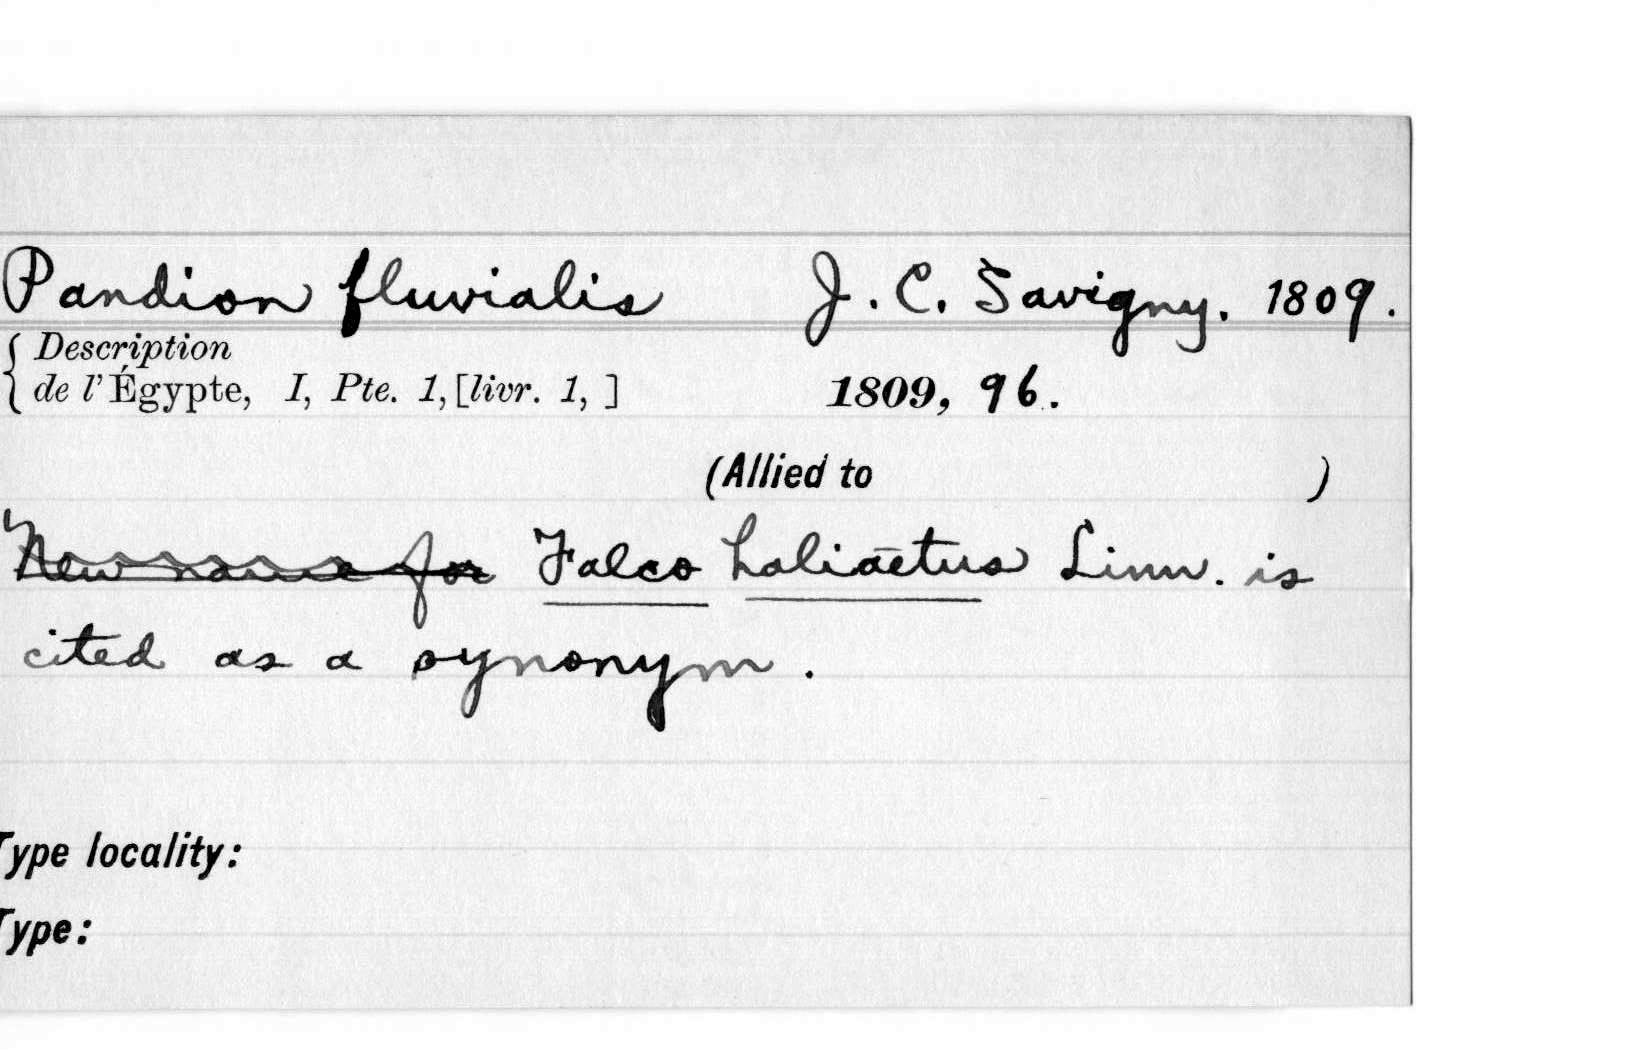 Pandion fluvialis J. C. Savigny. 1809.
Description
de l'Égypte, I, Pte. 1, [livr. 1, ] 1809, 96.
(Allied to )
New name for Falco haliaëtus Linn. is
cited as a synonym.
Type locality:
Type: